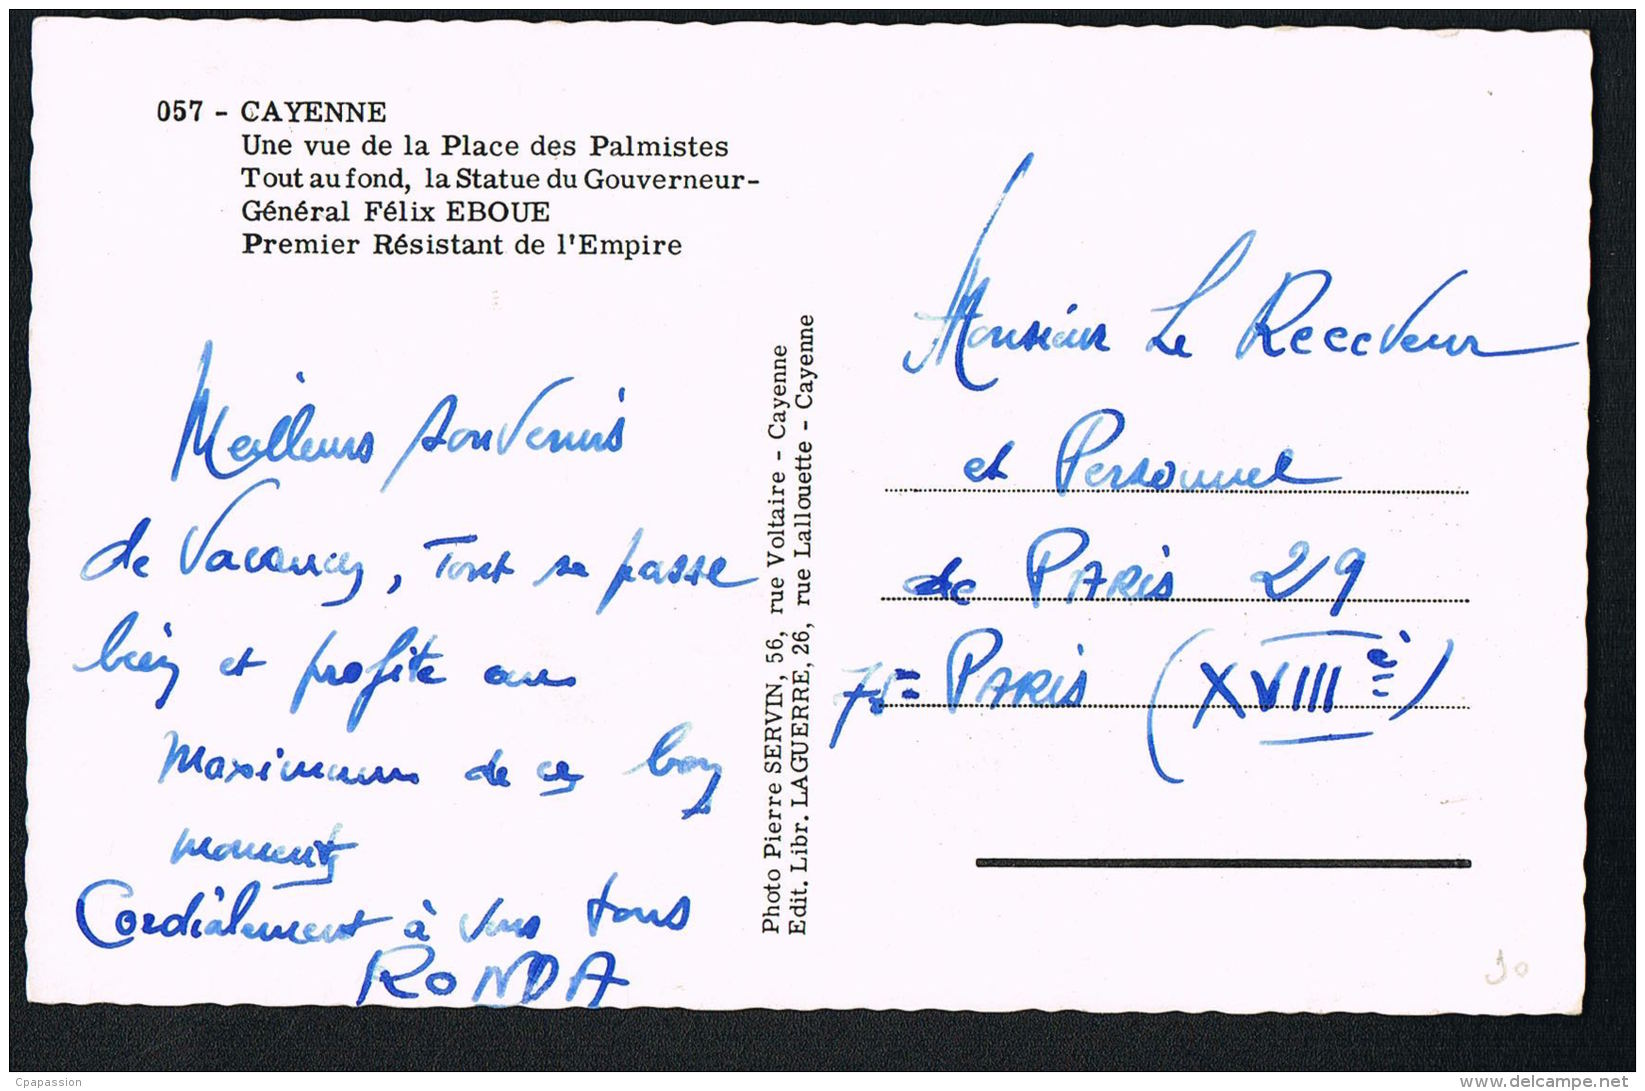 057 - CAYENNE
Une vue de la Place des Palmistes
Tout au fond, la Statue du Gouverneur-
Général Félix EBOUE
Premier Résistant de l'Empire
Meilleurs souvenirs
de Vacances, Tout se passe
bien et profite au
Maximum de ces bons
moments
Cordialement à vous tous
RONDA
Photo Pierre SERVIN, 56, rue Voltaire - Cayenne
Edit. Libr. LAGUERRE, 26, rue Lallouette - Cayenne
Monsieur Le Receveur
et Personnel
de PARIS 29
75= PARIS (XVIIIè)
30
Cpapassion
www.delcampe.net